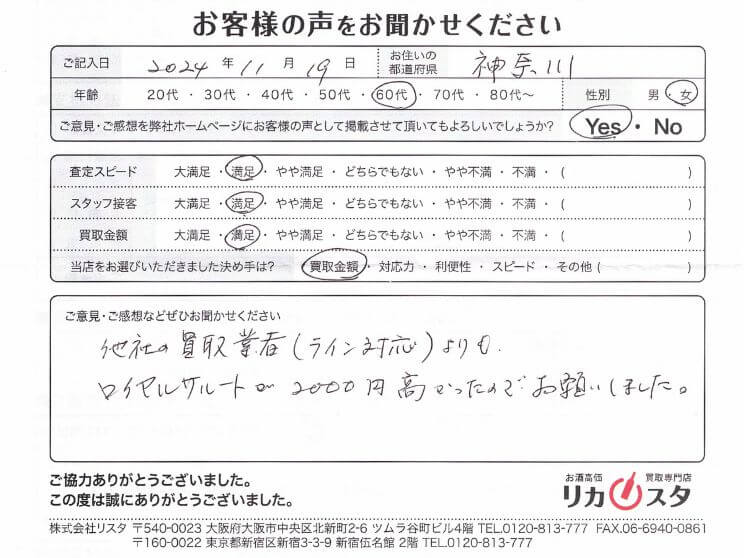 お客様の声をお聞かせください
ご記入日 2024 年 11 月 19 日 お住いの都道府県 神奈川
年齢 20代 ・ 30代 ・ 40代 ・ 50代 ・ 60代 ・ 70代 ・ 80代〜 性別 男 ・ 女
ご意見・ご感想を弊社ホームページにお客様の声として掲載させて頂いてもよろしいでしょうか? Yes ・ No
査定スピード 大満足 ・ 満足 ・ やや満足 ・ どちらでもない ・ やや不満 ・ 不満 ・ ( )
スタッフ接客 大満足 ・ 満足 ・ やや満足 ・ どちらでもない ・ やや不満 ・ 不満 ・ ( )
買取金額 大満足 ・ 満足 ・ やや満足 ・ どちらでもない ・ やや不満 ・ 不満 ・ ( )
当店をお選びいただきました決め手は? 買取金額 ・ 対応力 ・ 利便性 ・ スピード ・ その他 ( )
ご意見・ご感想などぜひお聞かせください
他社の買取業者(ライン対応)よりも、
ロイヤルサルートが 2000円高かったのでお願いしました。
ご協力ありがとうございました。
この度は誠にありがとうございました。
お酒高価 買取専門店
リカスタ
株式会社リスタ 〒540-0023 大阪府大阪市中央区北新町2-6 ツムラ谷町ビル4階 TEL.0120-813-777 FAX.06-6940-0861
〒160-0022 東京都新宿区新宿3-3-9 新宿伍名館 2階 TEL.0120-813-777